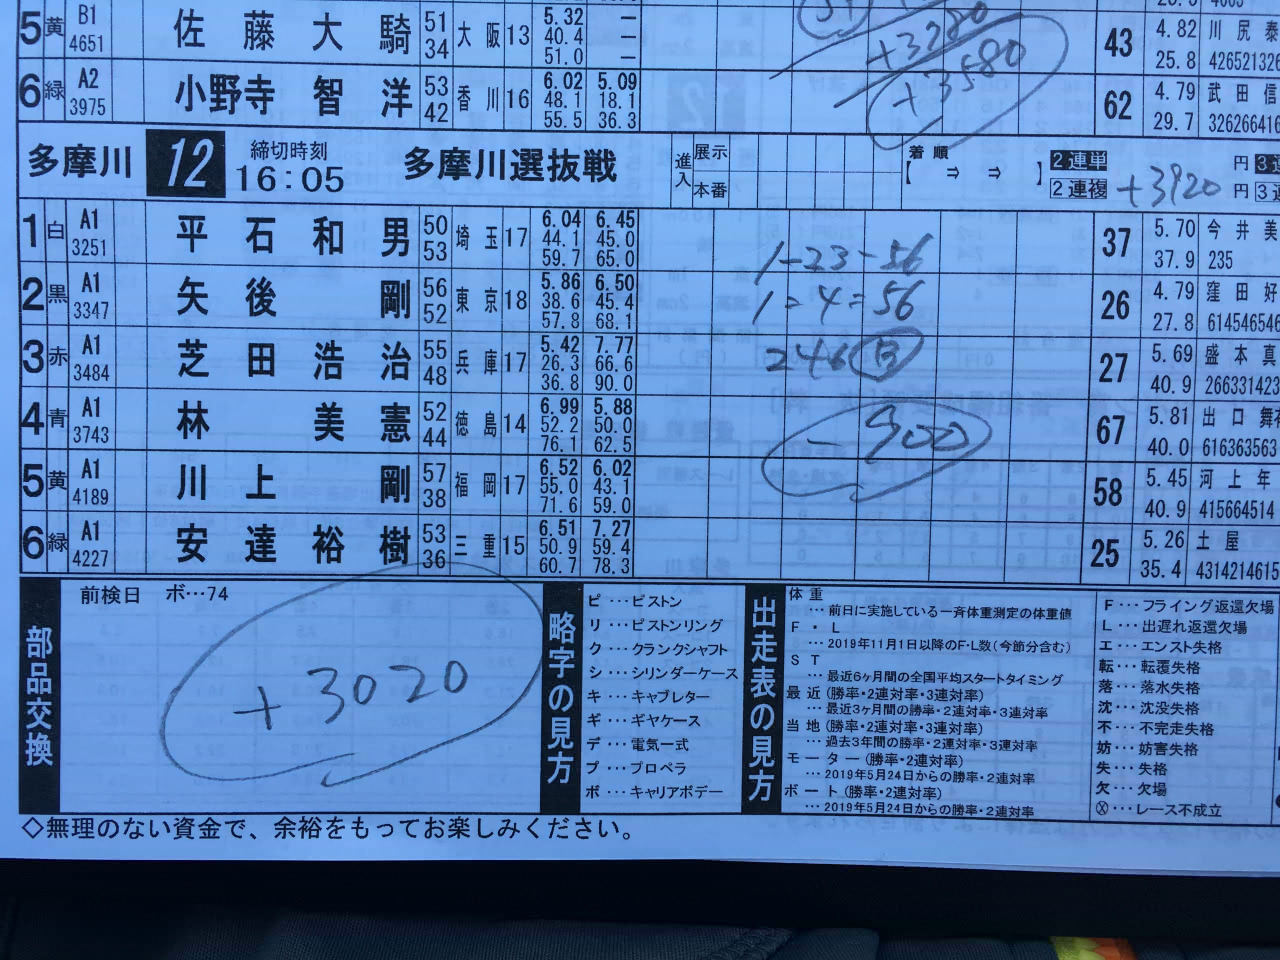 5 黄 B1 4651 佐藤大騎 51 34 大阪 13 5.32 40.4 51.0 — — — 43 4.82 25.8 川尻泰 426521326
+3220
+3580
6 緑 A2 3975 小野寺智洋 53 42 香川 16 6.02 48.1 55.5 5.09 18.1 36.3 62 4.79 29.7 武田信 326266416
多摩川 12 締切時刻 16:05 多摩川選抜戦 進入 展示 本番 着順 【 ⇒ ⇒ 】 2連単 円 2連複 +3920 円
1 白 A1 3251 平石和男 50 53 埼玉 17 6.04 44.1 59.7 6.45 45.0 65.0 37 5.70 37.9 今井美 235
1-23-56
2 黒 A1 3347 矢後剛 56 52 東京 18 5.86 38.6 57.8 6.50 45.4 68.1 26 4.79 27.8 窪田好 614546546
1=4=56
3 赤 A1 3484 芝田浩治 55 48 兵庫 17 5.42 26.3 36.8 7.77 66.6 90.0 27 5.69 40.9 盛本真 266331423
246
4 青 A1 3743 林美憲 52 44 徳島 14 6.99 52.2 76.1 5.88 50.0 62.5 67 5.81 40.0 出口舞 616363563
-900
5 黄 A1 4189 川上剛 57 38 福岡 17 6.52 55.0 71.6 6.02 43.1 59.0 58 5.45 40.9 河上年 415664514
6 緑 A1 4227 安達裕樹 53 36 三重 15 6.51 50.9 60.7 7.27 59.4 78.3 25 5.26 35.4 土屋 4314214615
部品交換
前検日 ボ…74
+3020
略字の見方
ピ…ピストン
リ…ピストンリング
ク…クランクシャフト
シ…シリンダーケース
キ…キャブレター
ギ…ギヤケース
デ…電気一式
プ…プロペラ
ボ…キャリアボデー
出走表の見方
体重
…前日に実施している一斉体重測定の体重値
F・L
…2019年11月1日以降のF・L数(今節分含む)
ST
…最近6ヶ月間の全国平均スタートタイミング
最近(勝率・2連対率・3連対率)
…最近3ヶ月間の勝率・2連対率・3連対率
当地(勝率・2連対率・3連対率)
…過去3年間の勝率・2連対率・3連対率
モーター(勝率・2連対率)
…2019年5月24日からの勝率・2連対率
ボート(勝率・2連対率)
…2019年5月24日からの勝率・2連対率
F…フライング返還欠場
L…出遅れ返還欠場
エ…エンスト失格
転…転覆失格
落…落水失格
沈…沈没失格
不…不完走失格
妨…妨害失格
失…失格
欠…欠場
Ⓧ…レース不成立
◇無理のない資金で、余裕をもってお楽しみください。